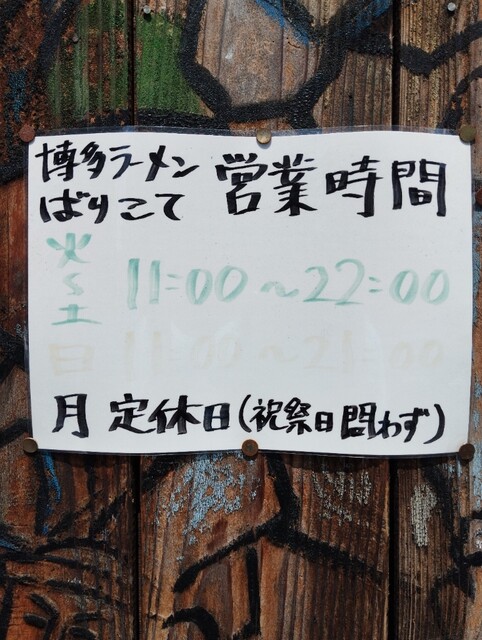 博多ラーメン
ばりこて
営業時間
火～土 11:00～22:00
日 11:00～21:00
月 定休日(祝祭日問わず)